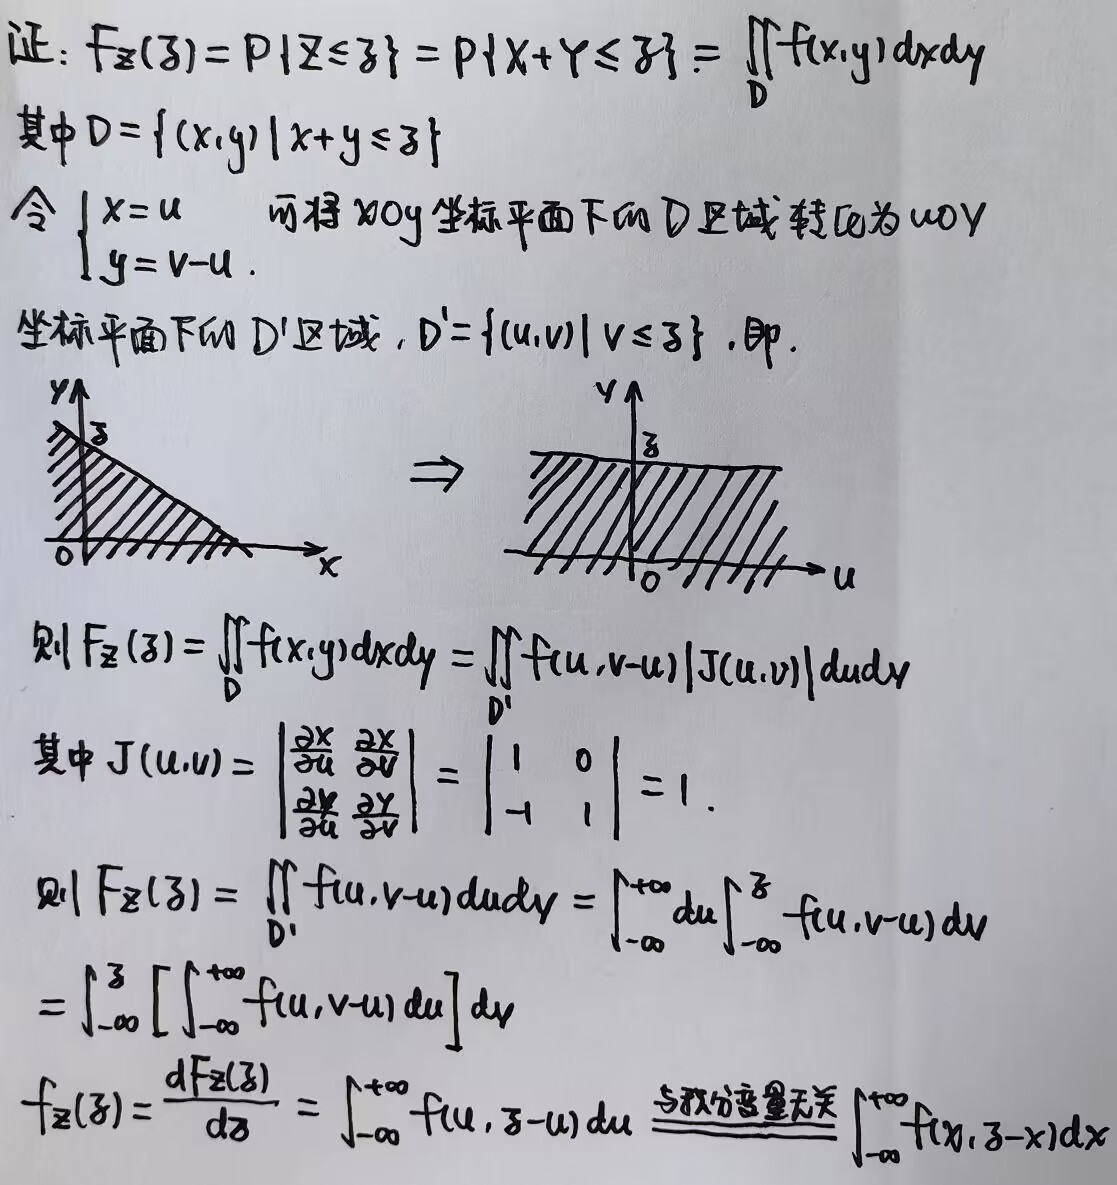 证: F_Z(z) = P{Z ≤ z} = P{X+Y ≤ z} = ∬_D f(x,y)dxdy
其中 D = {(x,y) | x+y ≤ z}
令 { x = u 可将 xOy 坐标平面下的 D 区域转化为 uOv
y = v-u .
坐标平面下的 D' 区域, D' = {(u,v) | v ≤ z} . 即.
y z O x ⇒ v z O u
则 F_Z(z) = ∬_D f(x,y)dxdy = ∬_{D'} f(u,v-u)|J(u,v)|dudv
其中 J(u,v) = |∂x/∂u ∂x/∂v; ∂y/∂u ∂y/∂v| = |1 0; -1 1| = 1 .
则 F_Z(z) = ∬_{D'} f(u,v-u)dudv = ∫_{-∞}^{+∞} du ∫_{-∞}^{z} f(u,v-u)dv
= ∫_{-∞}^{z} [∫_{-∞}^{+∞} f(u,v-u)du] dv
f_Z(z) = dF_Z(z)/dz = ∫_{-∞}^{+∞} f(u,z-u)du =(与积分变量无关)= ∫_{-∞}^{+∞} f(x,z-x)dx